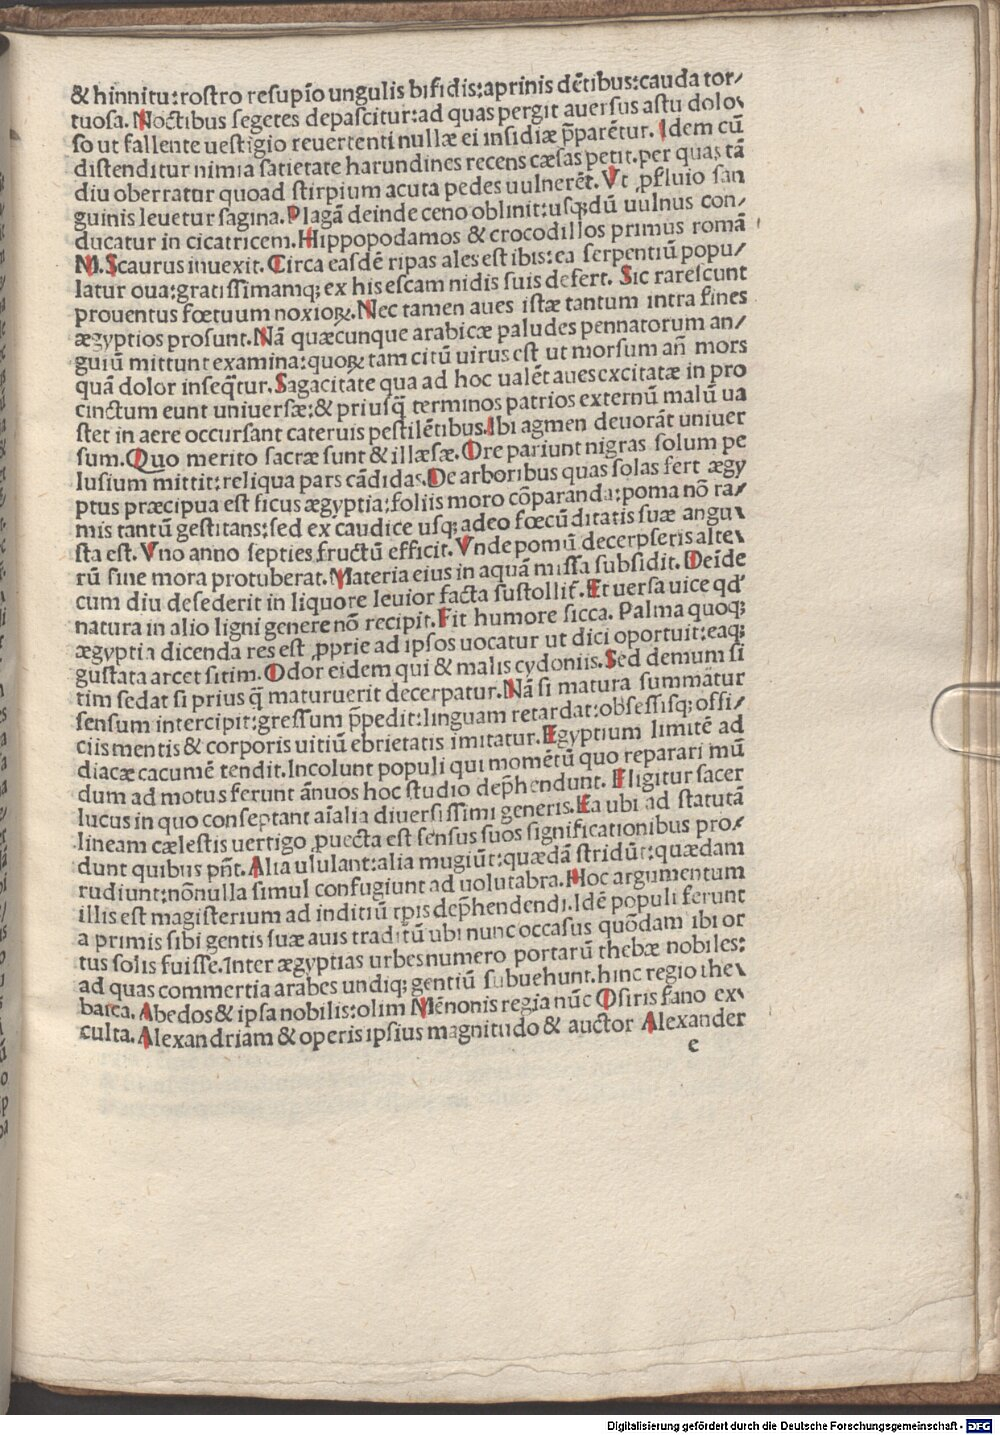 & hinnitu:rostro resupīo ungulis bifidis:aprinis dētibus:cauda tor⸗
tuosa. Noctibus segetes depascitur:ad quas pergit auersus astu dolo⸗
so ut fallente uestigio reuertenti nullæ ei insidiæ p̄parētur. Idem cū
distenditur nimia satietate harundines recens cæsas petit.per quas tā
diu oberratur quoad stirpium acuta pedes uulnerēt. Vt ꝓfluuio san
guinis leuetur sagina. Plagā deinde ceno oblinit:usq;dū uulnus con⸗
ducatur in cicatricem. Hippopodamos & crocodillos primus romā
M. Scaurus inuexit. Circa easdē ripas ales est ibis:ea serpentiū popu⸗
latur oua:gratissimamq; ex his escam nidis suis defert. Sic rarescunt
prouentus fœtuum noxioꝝ. Nec tamen aues istæ tantum intra fines
ægyptios prosunt. Nā quæcunque arabicæ paludes pennatorum an⸗
guiū mittunt examina:quoꝝ tam citū uirus est ut morsum añ mors
quā dolor inseq̄tur. Sagacitate qua ad hoc ualēt aues excitatæ in pro
cinctum eunt uniuersæ:& priusq̄ terminos patrios externū malū ua
stet in aere occursant cateruis pestilētibus. Ibi agmen deuorāt uniuer
sum. Quo merito sacræ sunt & illæsæ. Ore pariunt nigras solum pe
lusium mittit:reliqua pars cādidas. De arboribus quas solas fert ægy
ptus præcipua est ficus ægyptia:foliis moro cōparanda:poma nō ra⸗
mis tantū gestitans:sed ex caudice usq; adeo fœcūditatis suæ angu⸗
sta est. Vno anno septies fructū efficit. Vnde pomū decerpseris alte⸗
rū sine mora protuberat. Materia eius in aquā missa subsidit. Deīde
cum diu desederit in liquore leuior facta sustollit̄. Et uersa uice qd̄
natura in alio ligni genere nō recipit. Fit humore sicca. Palma quoq;
ægyptia dicenda res est ꝓprie ad ipsos uocatur ut dici oportuit:eaq;
gustata arcet sitim. Odor eidem qui & malis cydoniis. Sed demum si
tim sedat si prius q̄ maturuerit decerpatur. Nā si matura summatur
sensum intercipit:gressum p̄pedit:linguam retardat:obsessisq; offi⸗
ciis mentis & corporis uitiū ebrietatis imitatur. Egyptium limitē ad
diacæ cacumē tendit. Incolunt populi qui momētū quo reparari mū
dum ad motus ferunt ānuos hoc studio dep̄hendunt. Eligitur sacer
lucus in quo conseptant aīalia diuersissimi generis. Ea ubi ad statutā
lineam cælestis uertigo ꝓuecta est sensus suos significationibus pro⸗
dunt quibus pn̄t. Alia ululant:alia mugiūt:quædā stridūt:quædam
rudiunt:nōnulla simul confugiunt ad uolutabra. Hoc argumentum
illis est magisterium ad inditiū tp̄is dep̄hendendi. Idē populi ferunt
a primis sibi gentis suæ auis traditū ubi nunc occasus quōdam ibi or
tus solis fuisse. Inter ægyptias urbes numero portarū thebæ nobiles:
ad quas commertia arabes undiq; gentiū subuehunt. hinc regio the⸗
baica. Abedos & ipsa nobilis:olim Mēnonis regia nūc Osiris fano ex⸗
culta. Alexandriam & operis ipsius magnitudo & auctor Alexander
e
Digitalisierung gefördert durch die Deutsche Forschungsgemeinschaft - DFG